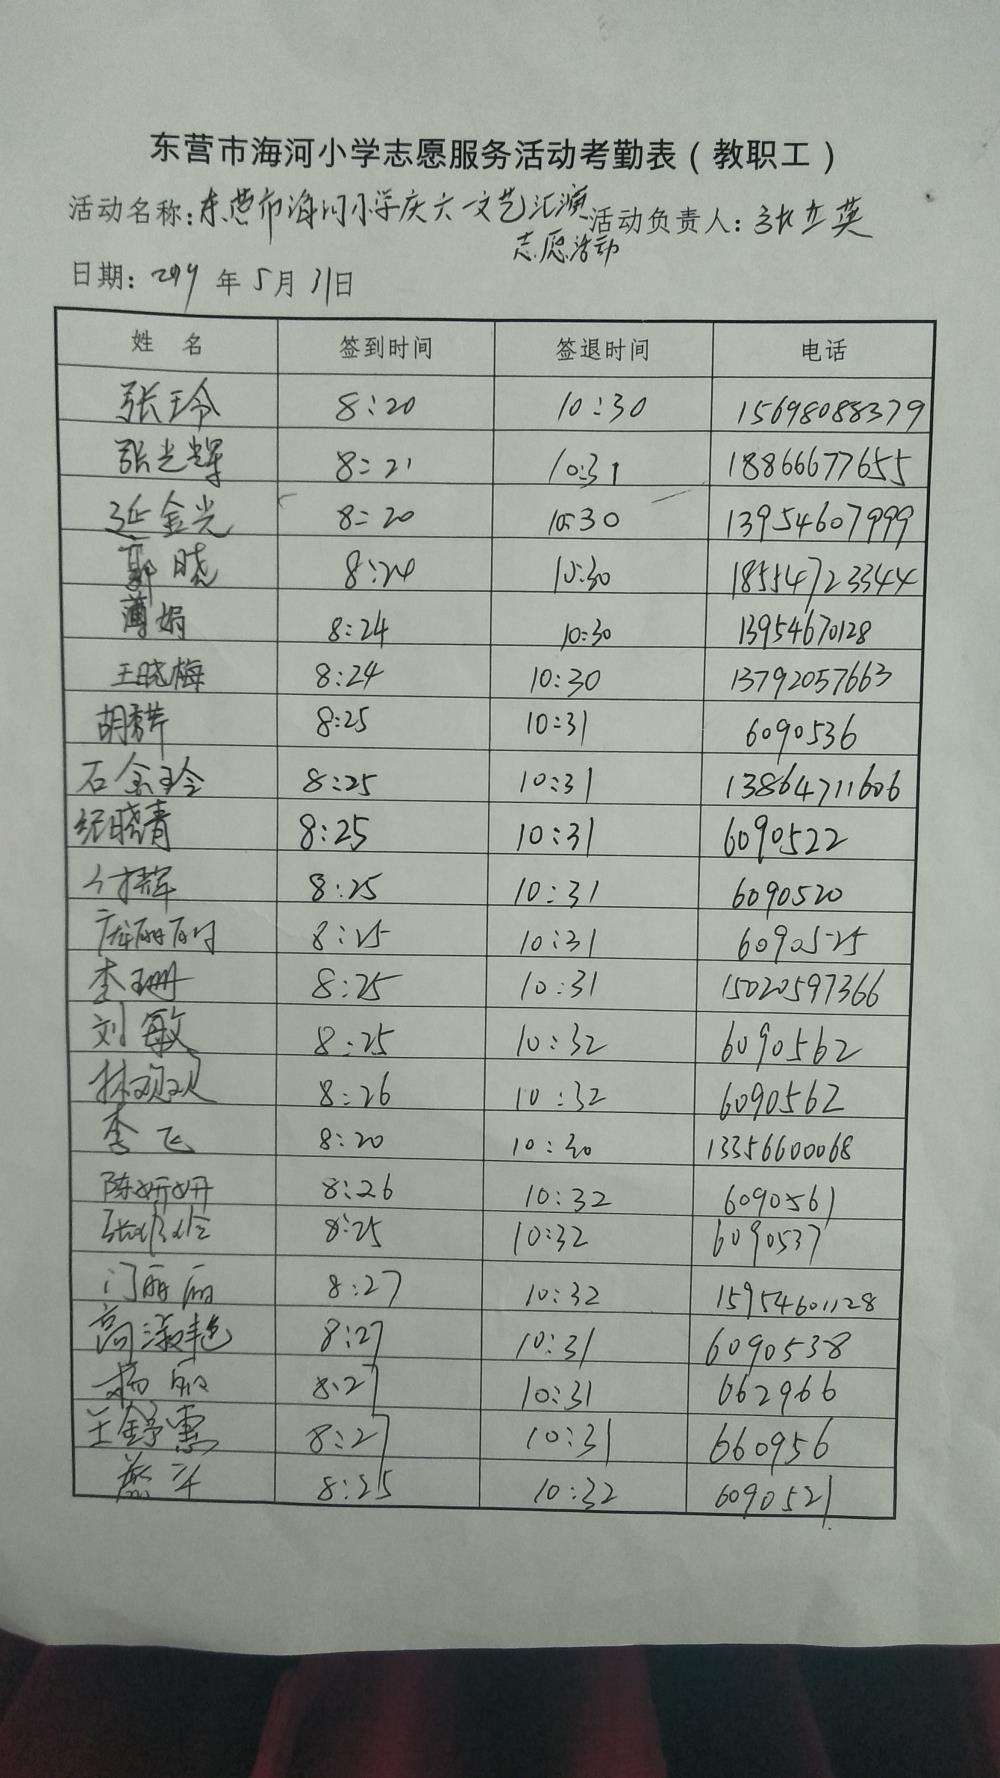 东营市海河小学志愿服务活动考勤表（教职工）
活动名称：东营市海河小学庆六一文艺汇演 活动负责人：张立英
志愿活动
日期：2019年5月31日
姓 名 签到时间 签退时间 电话
张玲 8:20 10:30 15698088379
张光辉 8:21 10:31 18866677655
延金光 8:20 10:30 13954607999
郭晓 8:24 10:30 18554723344
薄娟 8:24 10:30 13954670128
王晓梅 8:24 10:30 13792057663
胡芹 8:25 10:31 6090536
石金玲 8:25 10:31 13864711606
纪晓青 8:25 10:31 6090522
付辉 8:25 10:31 6090520
庞丽丽 8:25 10:31 6090525
李珊 8:25 10:31 15020597366
刘敏 8:25 10:32 6090562
林观观 8:26 10:32 6090562
李飞 8:20 10:30 13356600068
陈妍妍 8:26 10:32 6090561
张 8:25 10:32 6090537
门丽丽 8:27 10:32 15954601128
高淑艳 8:27 10:31 6090538
杨丽 8:27 10:31 662966
王舒惠 8:27 10:31 660956
8:25 10:32 6090521